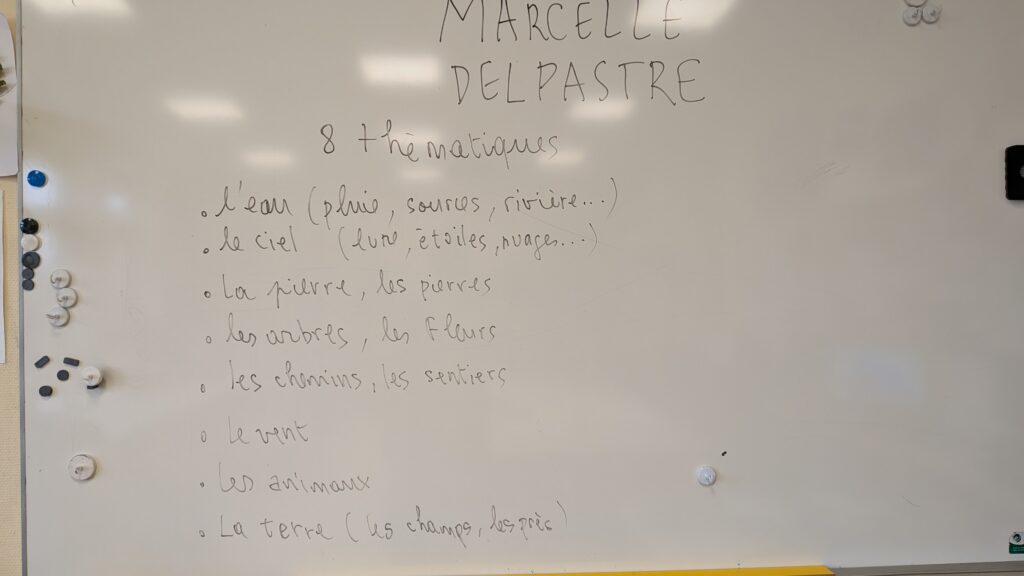 MARCELLE
DELPASTRE
8 thèmatiques
• l'eau (pluie, sources, rivière...)
• le ciel (lune, ètoiles, nuages...)
• La pierre, les pierres
• les arbres, les fleurs
• les chemins, les sentiers
• le vent
• les animaux
• La terre (les champs, les près)